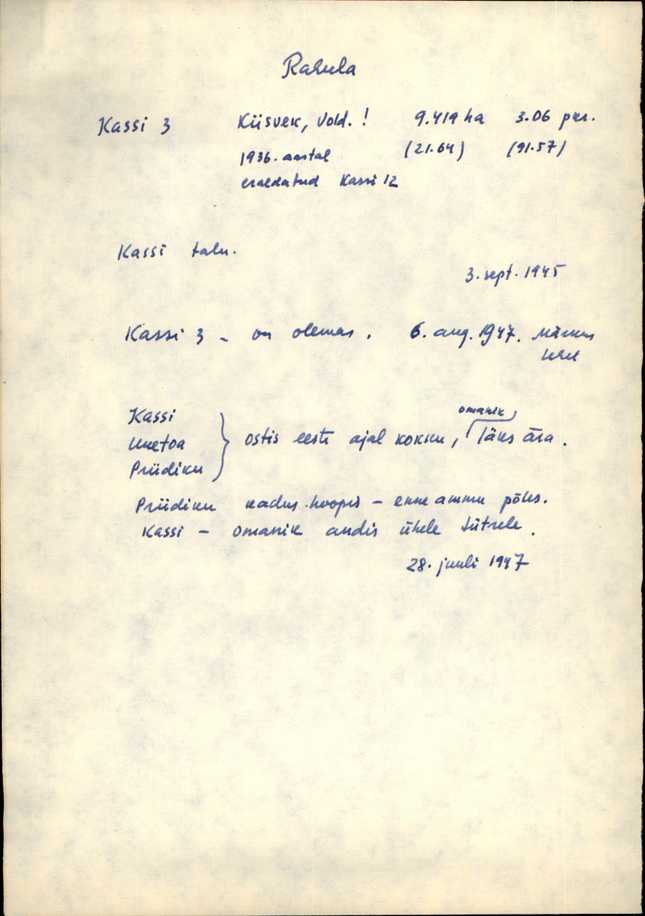 Rahula
Kassi 3 Kiisvek, Vold.! 9.419 ha 3.06 per.
1936. aastal (21.64) (91.57)
eraldatud Kassi 12
Kassi talu.
3. sept. 1945
Kassi 3 - on olemas. 6. aug. 1947.
omanik
Kassi
Unetoa ostis eesti ajal kokku, läks ära.
Priidiku
Priidiku kadus hoopis - enne ammu põles.
Kassi - omanik andis ühele tütrele.
28. juuli 1947